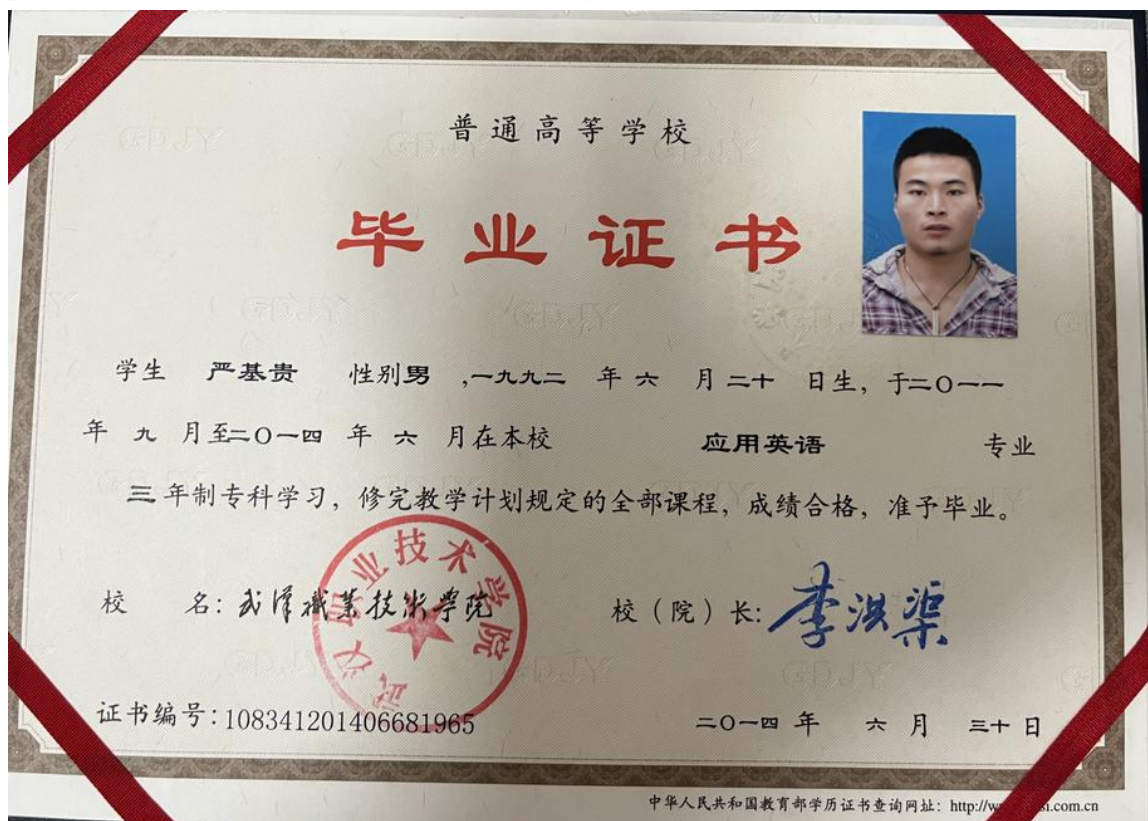 普通高等学校
毕业证书
学生 严基贵 性别男 ,一九九二 年 六 月 二十 日生, 于二O一一
年 九 月至二O一四 年 六 月在本校 应用英语 专业
三 年制专科学习, 修完教学计划规定的全部课程, 成绩合格, 准予毕业。
武汉职业技术学院
校 名: 武漢職業技術學院 校（院）长: 李洪渠
证书编号:108341201406681965 二O一四 年 六 月 三十 日
中华人民共和国教育部学历证书查询网址: http://w
.com.cn